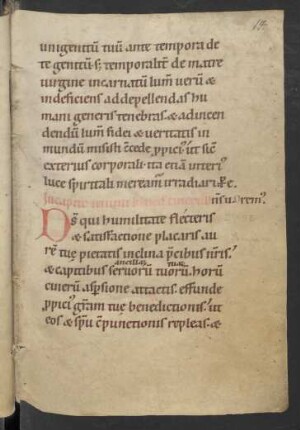 unigenitū tuū ante tempora de
te genitū. s; temporalit̄ de matre
virgine incarnatū lum̄ verū &
indeficiens ad depellendas hu
mani generis tenebras. & ad incen
dendū lum̄ fidei & veritatis in
mundū misisti. c̄cede ppici'. ut sic̄
exterius corporali. ita etiā interi'
luce spiritali meream̄ irradiari. Ꝑ e.
Incipit
D̄s qui humilitate flecteris
& satisfactione placaris. au
rē tuę pietatis inclina p̄cibus nr̄is.
& capitibus servorū tuorū. horū
ancillarū tuarū
cinerū asp̄sione attactis. effunde
ppici' gr̄am tuę benedictionis. ut
eos & sp̄u c̄punctionis repleas. &